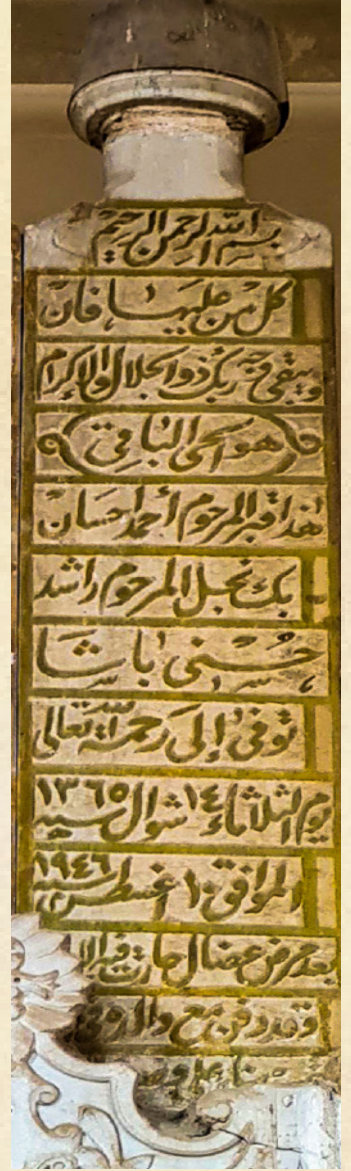 بسم الله الرحمن الرحيم
كل من عليها فان
ويبقى وجه ربك ذو الجلال والإكرام
هو الحي الباقي
هذا قبر المرحوم أحمد احسان
بك نجل المرحوم راشد
حسني باشا
توفي إلى رحمة الله تعالى
يوم الثلاثاء ١٤ شوال سنة ١٣٦٥
الموافق ١٠ اغسطس سنة ١٩٤٦
بعد مرض عضال حارت فيه الا
وقد دفن مع والد